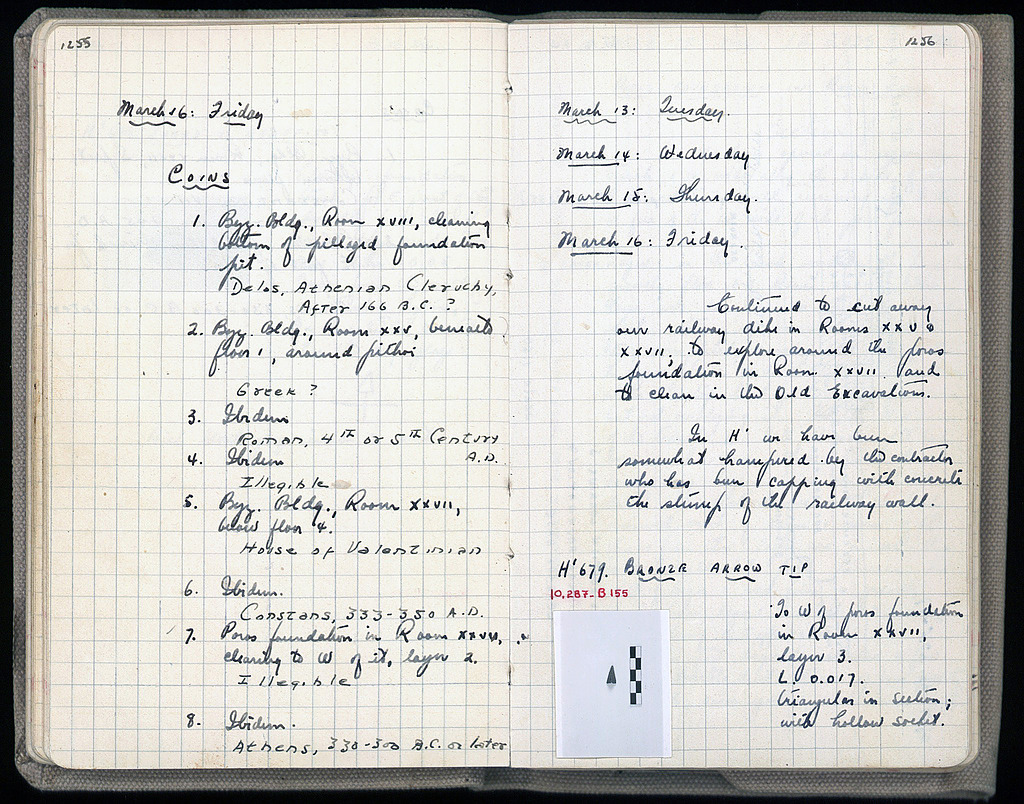 1255
March 16: Friday
COINS
1. Byz. Bldg., Room XVIII, cleaning
bottom of pillaged foundation
pit.
Delos, Athenian Cleruchy,
After 166 B.C. ?
2. Byz. Bldg., Room XXV, beneath
floor 1, around pithoi
Greek ?
3. Ibidem
Roman, 4TH or 5TH Century
A.D.
4. Ibidem
Illegible
5. Byz. Bldg., Room XXVII,
below floor 4.
House of Valentinian
6. Ibidem.
Constans, 333-350 A.D.
7. Poros foundation in Room XXVII,
clearing to W of it, layer 2.
Illegible
8. Ibidem.
Athens, 330-300 B.C. or later
1256
March 13: Tuesday.
March 14: Wednesday
March 15: Thursday.
March 16: Friday.
Continued to cut away
our railway dike in Rooms XXV &
XXVII, to explore around the poros
foundation in Room XXVII and
to clean in the Old Excavations.
In H' we have been
somewhat hampered by the contractor
who has been capping with concrete
the stump of the railway wall.
H' 679. BRONZE ARROW TIP
10,287-B 155
To W of poros foundation
in Room XXVII,
layer 3.
L. 0.017.
triangular in section;
with hollow socket.